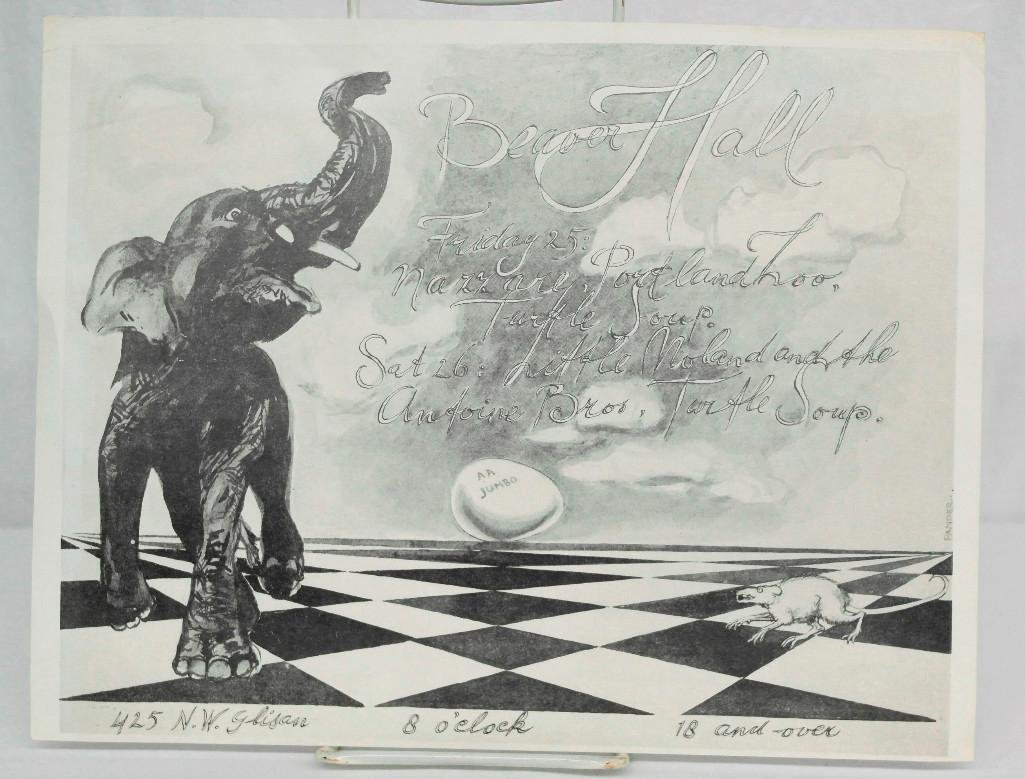 Beaver Hall
Friday 25:
Nazzare, Portland Zoo,
Turtle Soup.
Sat 26: Little Noland and the
Antoine Bros. Turtle Soup.
AA
JUMBO
PANDER.
425 N.W. Glisan 8 o'clock 18 and over